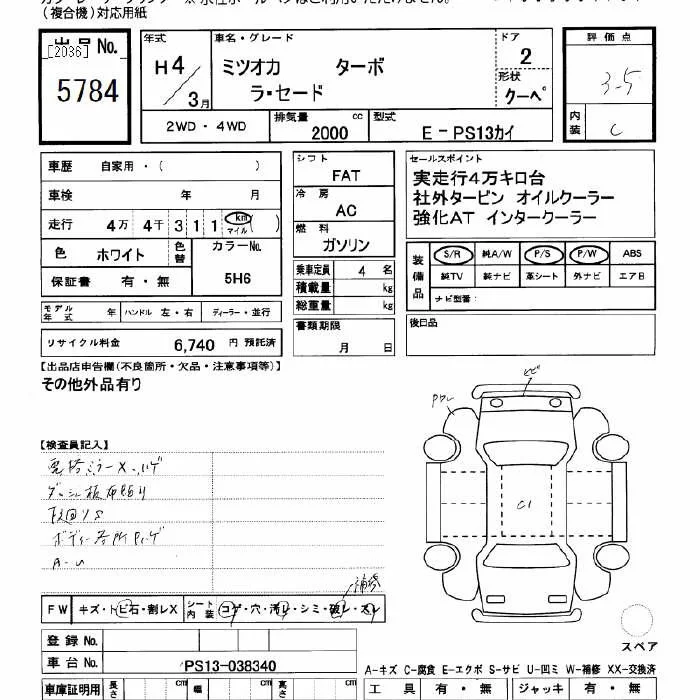 (複合機)対応用紙
出品No.
[2036]
5784
年式
H4/3月
車名・グレード
ミツオカ ターボ
ラ・セード
ドア
2
形状
クーペ
評価点
3-5
内装
C
2WD・4WD
排気量 2000 cc
型式 E-PS13カイ
車歴 自家用・( )
車検 年 月
走行 4万 4千 3 1 1 km マイル ( )
色 ホワイト
色替
カラーNo.
5H6
保証書 有・無
モデル年式 年
ハンドル 左・右
ディーラー・並行
リサイクル料金 6,740 円 預託済
シフト
FAT
冷房
AC
燃料
ガソリン
乗車定員 4 名
積載量 kg
総重量 kg
書類期限
月 日
セールスポイント
実走行4万キロ台
社外タービン オイルクーラー
強化AT インタークーラー
装備品
S/R 純A/W P/S P/W ABS
純TV 純ナビ 革シート 外ナビ エアB
ナビ型番:
後日品
【出品店申告欄(不良箇所・欠品・注意事項等)】
その他外品有り
【検査員記入】
ダッシュ板
下回りS
ボディー各所
A-U
ヒビ
C1
FW キズ・トビ石・割レX
シート内装 コゲ・穴・汚レ・シミ・破レ・スレ
登録No.
車台No. PS13-038340
スペア
A-キズ C-腐食 E-エクボ S-サビ U-凹ミ W-補修 XX-交換済
車庫証明用 長さ cm 幅 cm 高さ cm
工具 有・無 ジャッキ 有・無